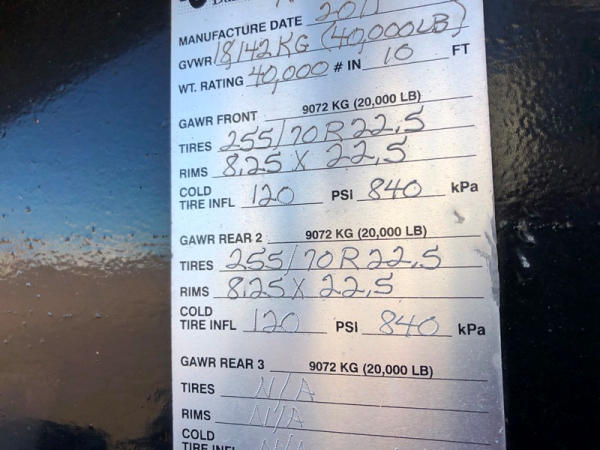 MANUFACTURE DATE 2011
GVWR 18,142 KG (40,000 LB)
WT. RATING 40,000 # IN 10 FT
GAWR FRONT 9072 KG (20,000 LB)
TIRES 255/70R22.5
RIMS 8.25 X 22.5
COLD
TIRE INFL 120 PSI 840 kPa
GAWR REAR 2 9072 KG (20,000 LB)
TIRES 255/70R22.5
RIMS 8.25 X 22.5
COLD
TIRE INFL 120 PSI 840 kPa
GAWR REAR 3 9072 KG (20,000 LB)
TIRES N/A
RIMS N/A
COLD
TIRE INFL